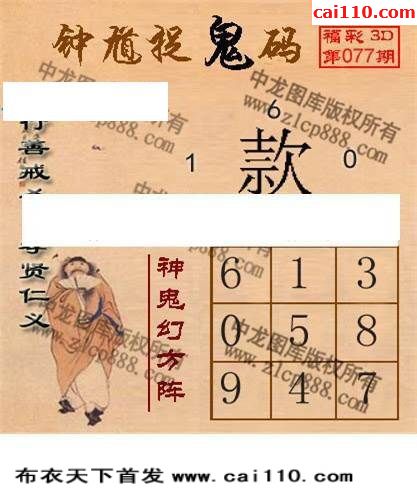 cai110.com
钟馗捉鬼码
福彩3D
第077期
中龙图库版权所有
www.zlcp888.com
6
1 款 0
行善戒
尊贤仁义
神鬼幻方阵
6 1 3
0 5 8
9 4 7
中龙图库版权所有
www.zlcp888.com
布衣天下首发 www.cai110.com